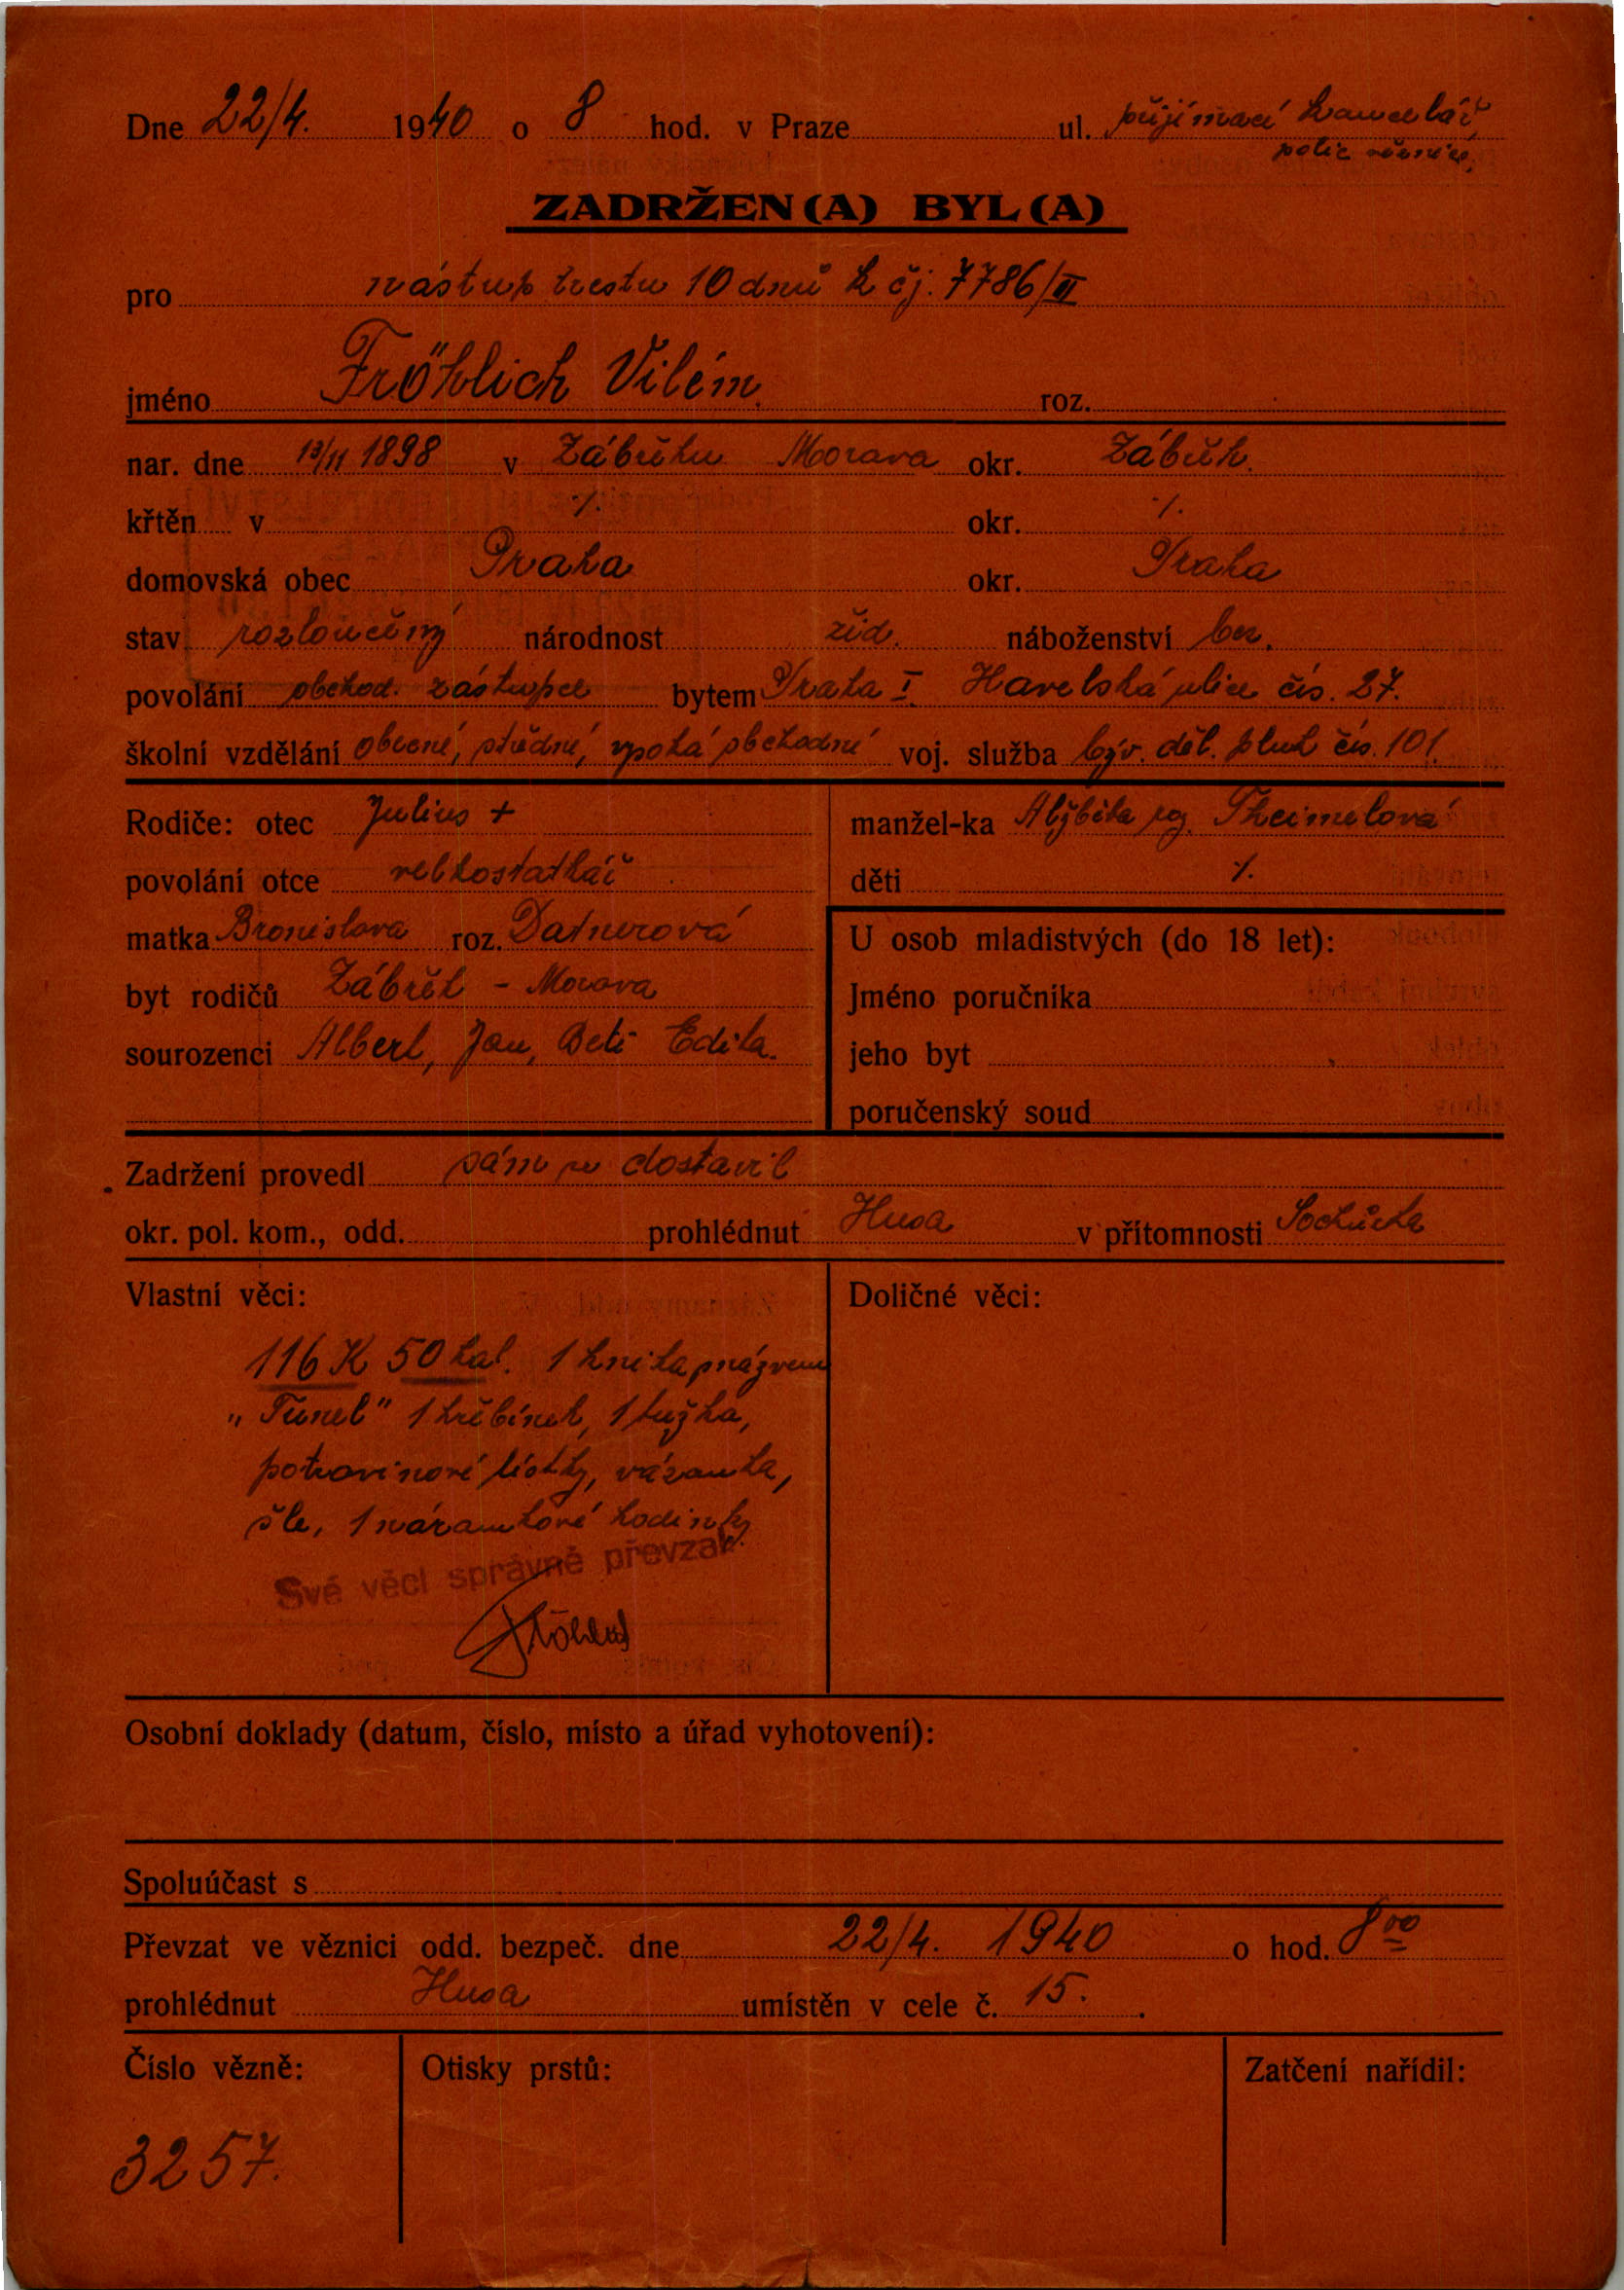 Dne 22/4. 1940 o 8 hod. v Praze ul. přijímací kancelář
polic věznice
ZADRŽEN(A) BYL(A)
pro nástup trestu 10 dnů k čj. 7786/II
jméno Fröhlich Vilém. roz.
nar. dne 13/11 1898 v Zábřehu Morava okr. Zábřeh.
křtěn v ·/. okr. ·/.
domovská obec Praha okr. Praha
stav rozloučený národnost žid. náboženství bez.
povolání obchod. zástupce bytem Praha I. Havelská ulice čís. 27.
školní vzdělání obecné, střední, vysoká obchodní voj. služba býv. děl. pluk čís. 101.
Rodiče: otec Julius + manžel-ka Alžběta roz. Theimelová
povolání otce velkostatkář děti ·/.
matka Bronislava roz. Datnerová
U osob mladistvých (do 18 let):
byt rodičů Zábřeh - Morava Jméno poručníka
sourozenci Albert, Jan, Beti Edita. jeho byt
poručenský soud
Zadržení provedl sám se dostavil
okr. pol. kom., odd. prohlédnut Husa v přítomnosti
Vlastní věci: Doličné věci:
116 K 50 hal. 1 kniha s názvem
„Tunel" 1 hřebínek, 1 tužka,
potravinové lístky, vázanka,
šle, 1 náramkové hodinky.
Své věci správně převzal:
Osobní doklady (datum, číslo, místo a úřad vyhotovení):
Spoluúčast s
Převzat ve věznici odd. bezpeč. dne 22/4. 1940 o hod. 8 00
prohlédnut Husa umístěn v cele č. 15.
Číslo vězně: Otisky prstů: Zatčení nařídil:
3257.